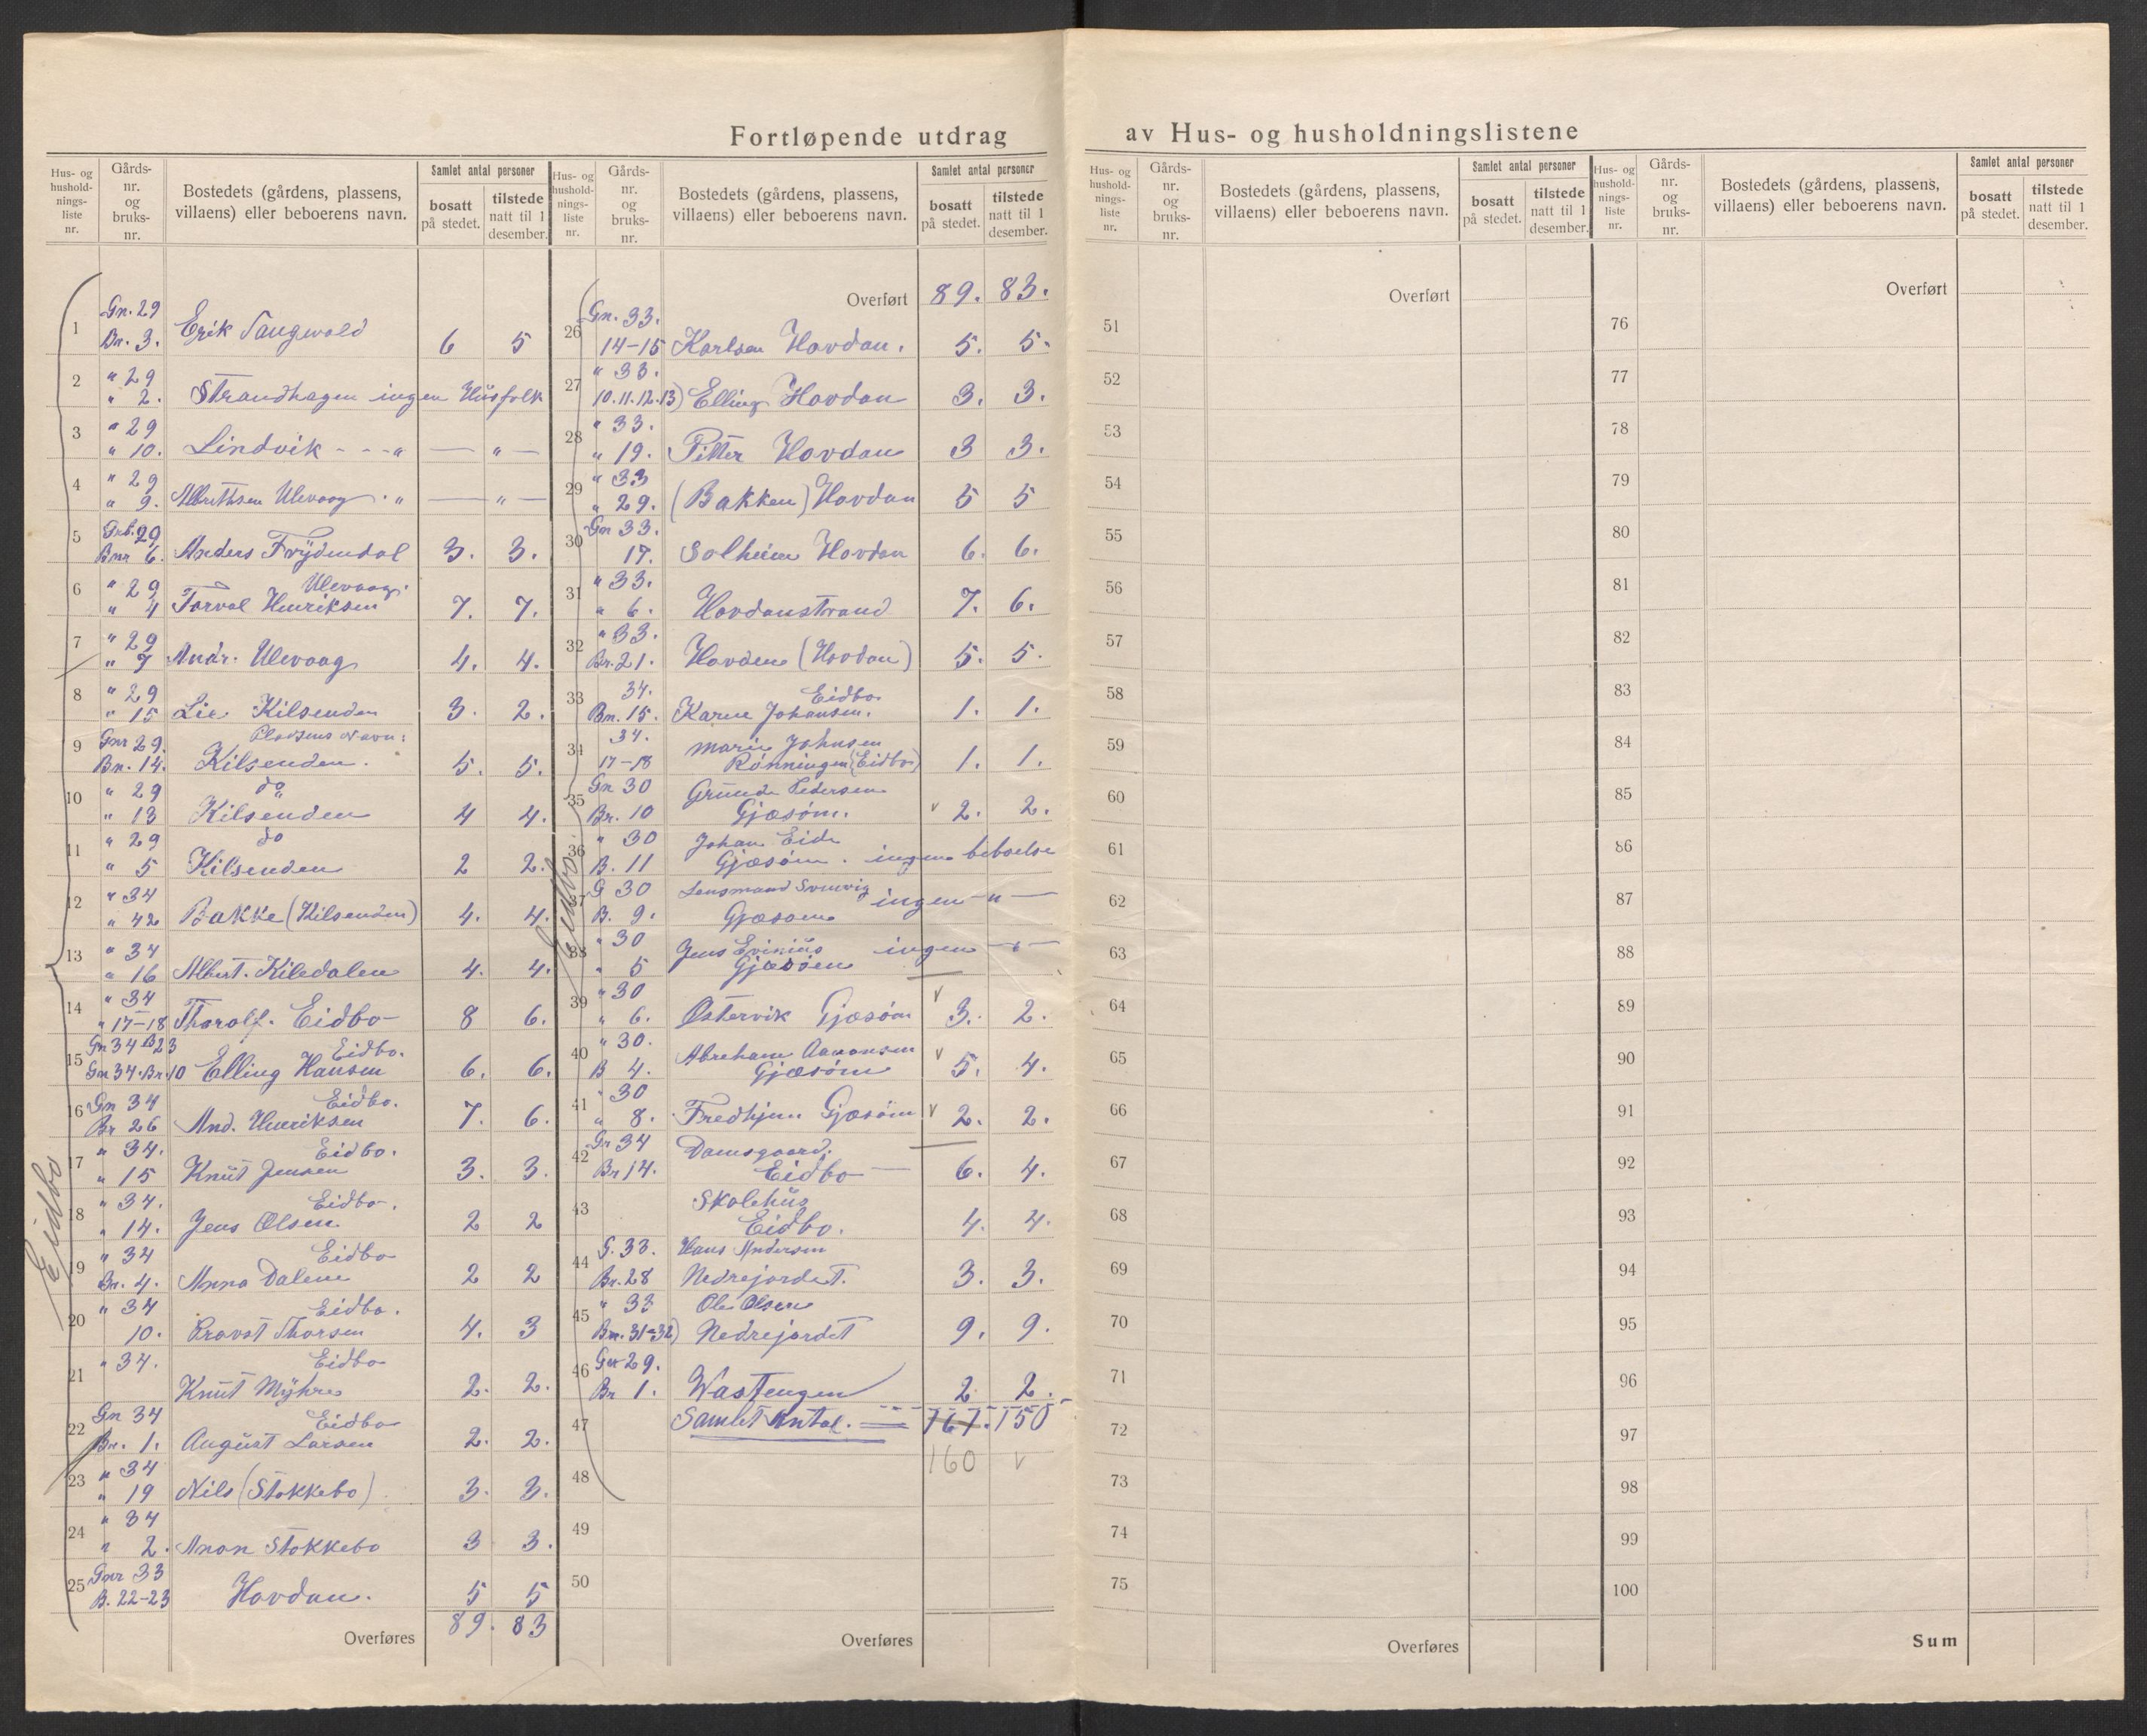 Fortløpende utdrag av Hus- og husholdningslistene
Hus- og husholdningsliste nr.
Gårds-nr. og bruks-nr.
Bostedets (gårdens, plassens, villaens) eller beboerens navn.
Samlet antal personer
bosatt på stedet.
tilstede natt til 1 desember.
1 Gn. 29 Bn. 3. Erik Tangwald 6 5
2 " 29 " 2. Strandhagen ingen Husfolk
3 " 29 " 10. Lindvik - - - " — " —
4 " 29 " 9. Albrethsen Ulevaag " — " —
5 29 Bnr 6. Anders Frydendal 3. 3.
6 " 29 " 4 Torval Henriksen Ulevaag. 7. 7.
7 " 29 " 7 Andr. Ulevaag 4. 4.
8 " 29 " 15 Lie Kilsenden 3. 2.
9 Gnr 29. Bn. 14. Pladsens Navn: Kilsenden. 5. 5.
10 " 29 " 13 do Kilsenden 4 4.
11 " 29 " 5 do Kilsenden 2 2.
12 " 34 " 42 Bakke (Kilsenden) 4. 4.
13 " 34 " 16 Albert. Kiledalen 4. 4.
14 " 34 " 17-18 Thorolf. Eidbo 8 6.
15 Gn 34 B23 Gn 34. Br. 10 Elling Hansen Eidbo. 6. 6.
16 Gn 34 Br 26 And. Henriksen Eidbo. 7. 6.
17 " 34. " 15 Knut Jensen Eidbo. 3. 3.
18 " 34. " 14. Jens Olsen Eidbo. 2 2
19 " 34 Bn. 4. Anna Dalene Eidbo 2 2
20 " 34 10. Provst Thorsen Eidbo. 4. 3
21 " 34. Knut Myhre Eidbo 2. 2.
22 Gn 34 Bn. 1. August Larsen Eidbo 2. 2.
23 " 34 " 19 Nils (Stokkebo) 3. 3.
24 " 34 " 2. Anon Stokkebo 3 3.
25 Gnr 33 B. 22-23 Hovdan. 5 5
Overføres 89. 83
Eidbo
Hus- og husholdningsliste nr.
Gårds-nr. og bruks-nr.
Bostedets (gårdens, plassens, villaens) eller beboerens navn.
Samlet antal personer
bosatt på stedet.
tilstede natt til 1 desember.
Overført 89. 83.
26 Gn. 33. 14-15 Karlsen Hovdan. 5. 5.
27 " 33. 10.11.12.13) Elling Hovdan 3. 3.
28 " 33. " 19. Pitter Hovdan 3 3.
29 " 33 " 29. (Bakken) Hovdan 5 5
30 Gn 33. 17. Solheim Hovdan 6. 6.
31 " 33. " 6. Hovdanstrand 7. 6.
32 " 33. Br. 21. Hovden (Hovdan) 5. 5.
33 34. Bn. 15. Karen Johansen. Eidbo. 1. 1.
34 34. 17-18 Marie Johnsen Rönningen (Eidbo) 1. 1.
35 Gn 30 Br. 10 Pedersen Gjøsøm. v 2. 2.
36 " 30 B. 11 Johan Eide Gjøsøm. ingen beboelse
37 G 30 B. 9. Lensmand Gjøsøm ingen — " —
38 " 30 " 5 Jens Gjøsøm ingen — " —
39 " 30 " 6. Østervik Gjøsøm v 3. 2.
40 " 30. B 4. Abreham Aanonsen Gjøsøm v 5. 4.
41 " 30 " 8. Fredhjem Gjøsøm v 2. 2.
42 Gn 34 Br 14. Damsgaard. Eidbo — 6. 4.
43 Skolehus Eidbo. 4. 4.
44 G. 33. Br. 28 Hans Andersen Nedrejordet. 3. 3.
45 " 33 Bn. 31-32) Ole Olsen Nedrejordet 9. 9.
46 Gn 29. Br 1. Wastengen 2 2.
47 Samlet Antal. = 167. 150
48 160 v
49
50
Overføres
Eidbo
Hus- og husholdningsliste nr.
Gårds-nr. og bruks-nr.
Bostedets (gårdens, plassens, villaens) eller beboerens navn.
Samlet antal personer
bosatt på stedet.
tilstede natt til 1 desember.
Overført
51
52
53
54
55
56
57
58
59
60
61
62
63
64
65
66
67
68
69
70
71
72
73
74
75
Overføres
Hus- og husholdningsliste nr.
Gårds-nr. og bruks-nr.
Bostedets (gårdens, plassens, villaens) eller beboerens navn.
Samlet antal personer
bosatt på stedet.
tilstede natt til 1 desember.
Overført
76
77
78
79
80
81
82
83
84
85
86
87
88
89
90
91
92
93
94
95
96
97
98
99
100
Sum